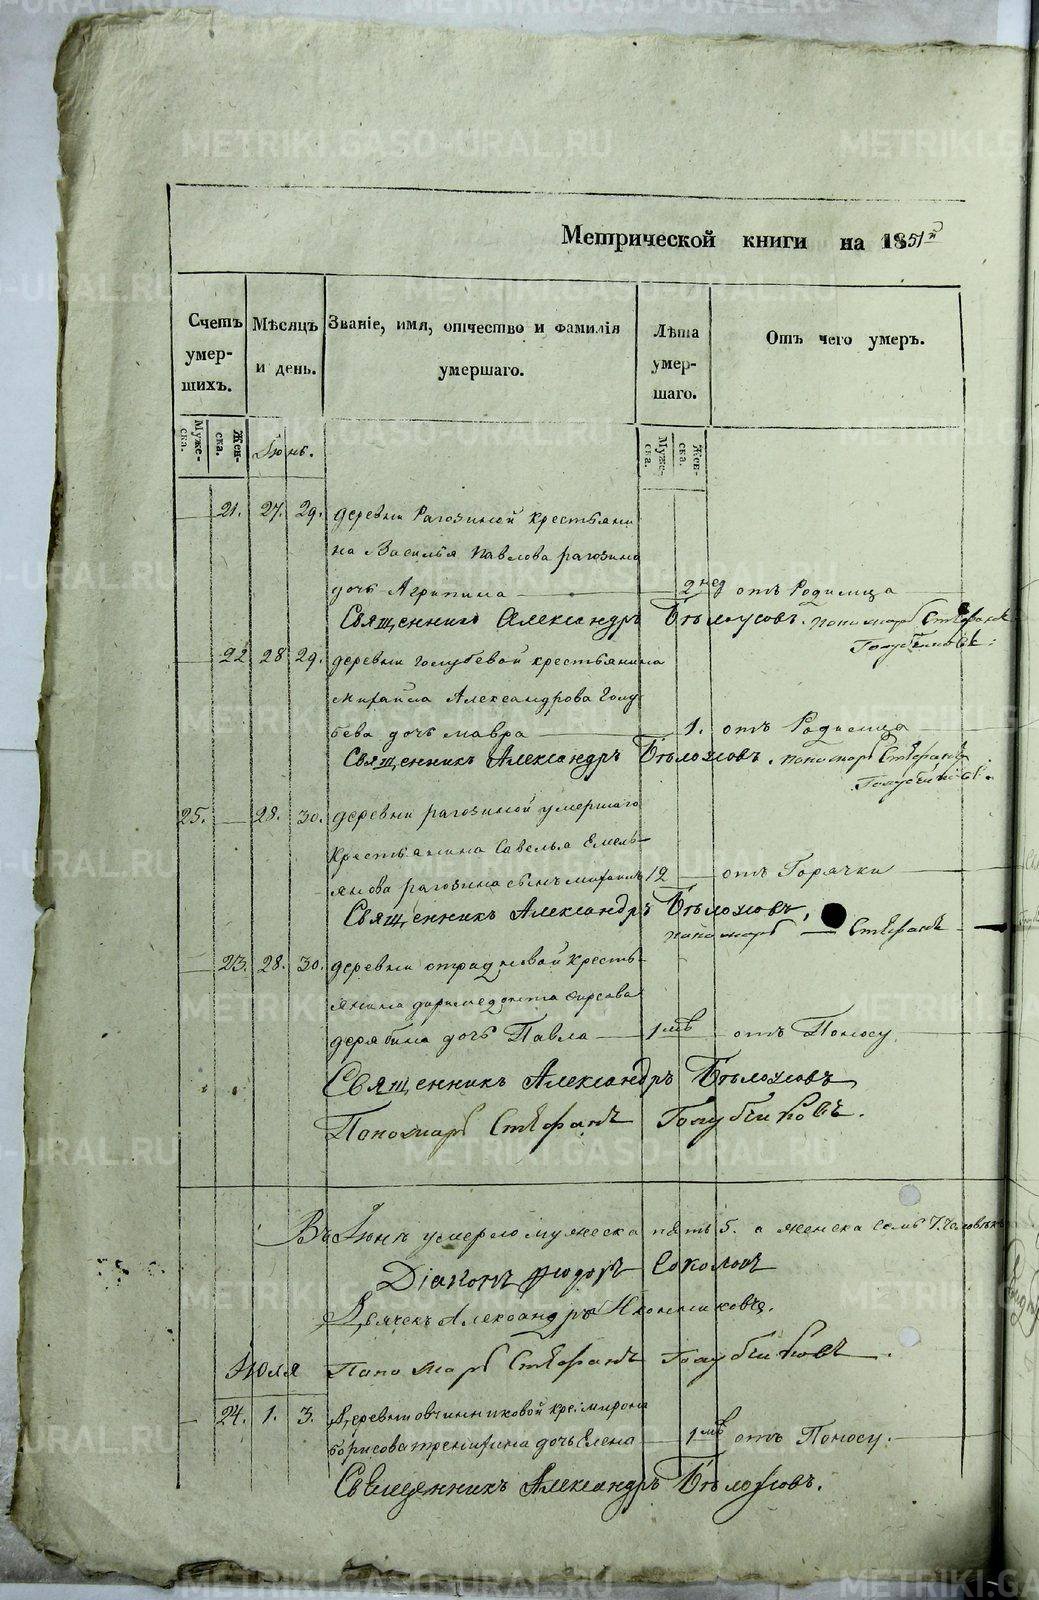 Метрической книги на 1851й
Счетъ умер-шихъ.
Мѣсяцъ и день.
Званіе, имя, отчество и фамилія умершаго.
Лѣта умер-шаго.
Отъ чего умеръ.
Муже-ска.
Жен-ска.
Муже-ска.
Жен-ска.
Іюнь.
21. 27. 29. деревни Рагозиной крестьяни
на Василья Павлова рагозина
дочь Агрипина 2 нед отъ Родимца
Священникъ Александръ Бѣлоусовъ. пономарь Стефанъ
Голубчиковъ.
22 28 29. деревни голубевой крестьянина
михайла Александрова Голу
бева дочь мавра 1. отъ Родимца
Священникъ Александръ Бѣлоусовъ. пономарь Стефанъ
Голубчиковъ.
25. 28. 30. деревни рагозиной умершаго
крестьянина Савелья Емель-
янова рагозина сынъ михаилъ 12 отъ Горячки
Священникъ Александръ Бѣлоусовъ,
пономарь Стефанъ
23. 28. 30. деревни отрадновой кресть-
янина даримедонта фирсова
дерябина дочь Павла 1 мѣ отъ Поносу.
Священникъ Александръ Бѣлоусовъ
Пономарь Стефанъ Голубчиковъ.
Въ Іюнѣ умерло мужеска пять 5. а женска семь 7. человѣкъ
Діаконъ Ѳеодоръ Соколовъ
Дьячекъ Александръ Иконниковъ.
Июля Пономарь Стефанъ Голубчиковъ.
24. 1. 3. Деревни овчинниковой кре: мирона
борисова дочь Елена 1 мѣ отъ Поносу.
Священникъ Александръ Бѣлоусовъ.
METRIKI.GASO-URAL.RU